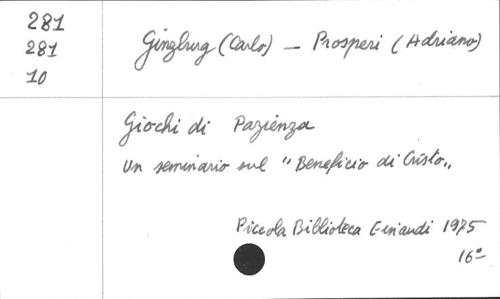 281
281
10
Ginzburg (Carlo) — Prosperi (Adriano)
Giochi di Pazienza
Un seminario sul "Beneficio di Cristo"
Piccola Biblioteca Einaudi 1975
16º